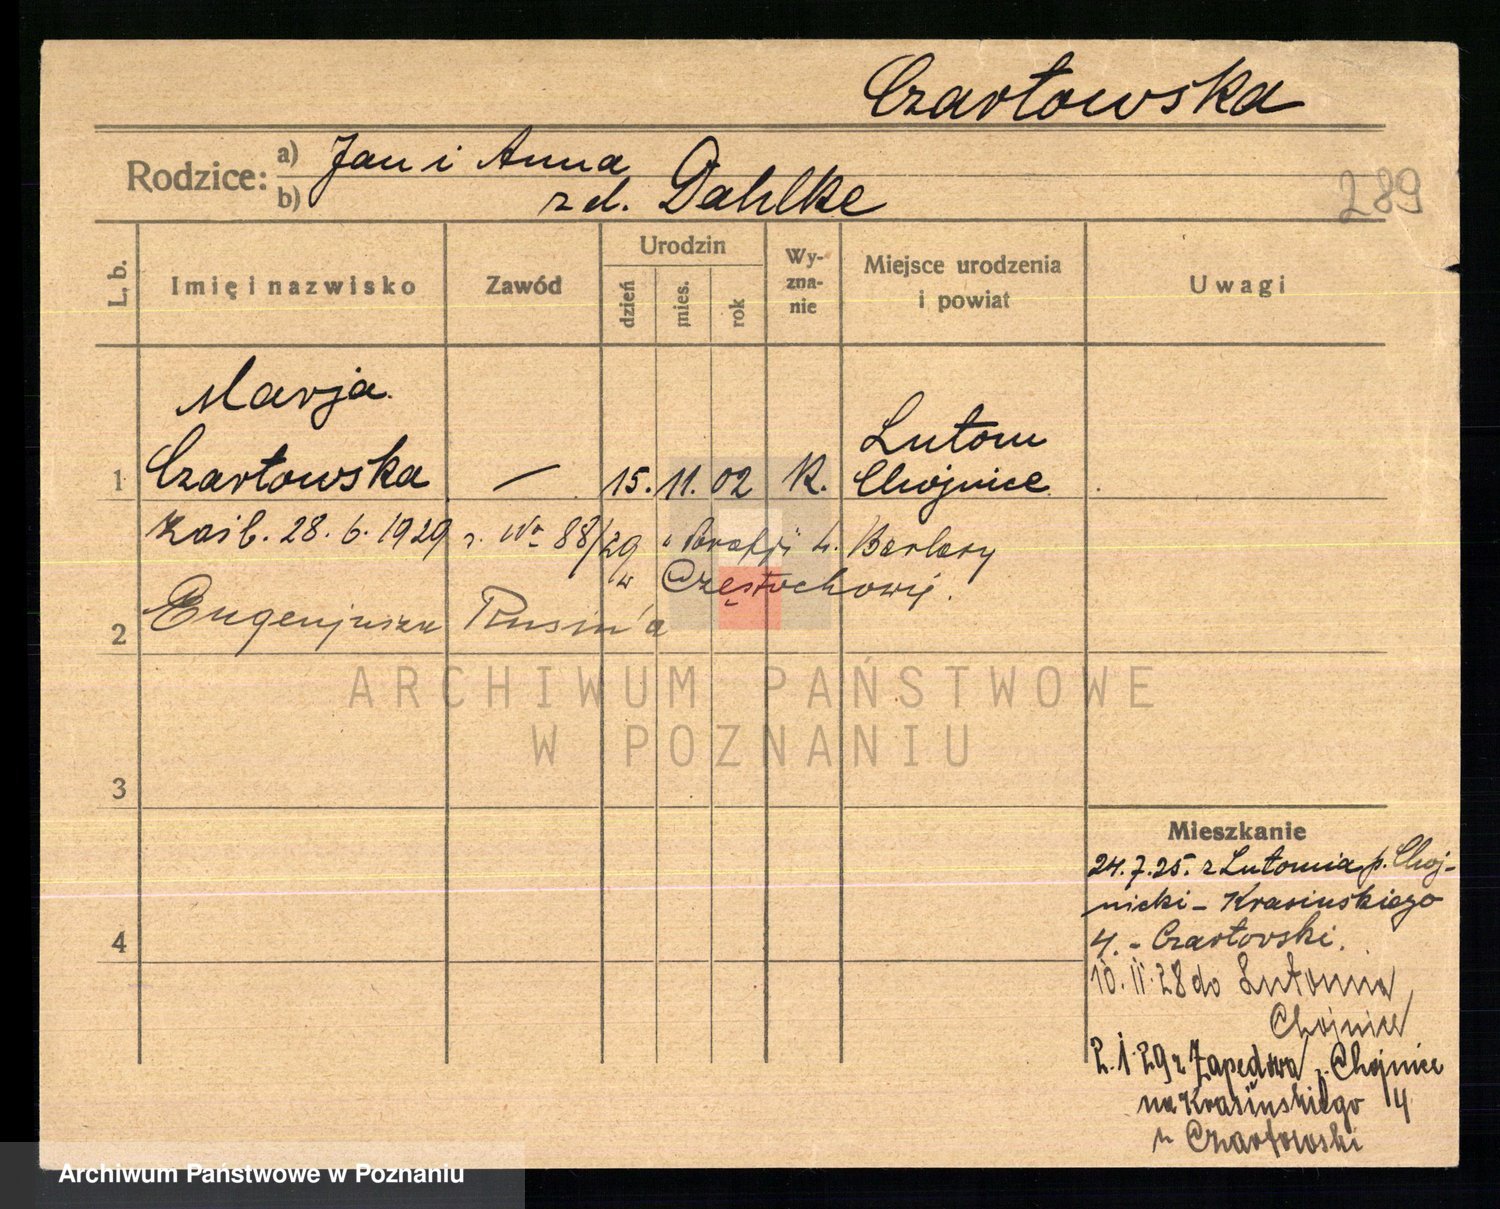 Czartowska
Rodzice: a) Jan i Anna
b) zd. Dahlke
289
L. b. Imię i nazwisko Zawód Urodzin dzień mies. rok Wy-zna-nie Miejsce urodzenia i powiat Uwagi
Marja
Czartowska
Lutom
1 — 15. 11. 02 K. Chojnice
28. 6. 1929 r. Nr 88/29 Parafji Barbary
w Częstochowie.
2 Eugenjusza Rusin'a
ARCHIWUM PAŃSTWOWE
W POZNANIU
3
Mieszkanie
24.7.25. z Lutomia p. Choj-
nicki - Krasińskiego
4
4. - Czartovski.
10. 11. 28 do Lutomia
Chojnice
2. 1. 29 z Zapędowa Chojnice
na Krasińskiego 14
u Czartowski
Archiwum Państwowe w Poznaniu